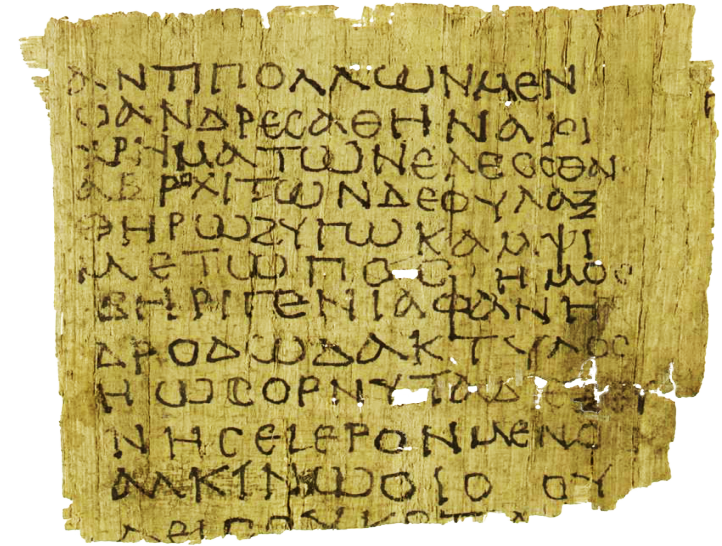 ΑΝΤΙΠΟΛΛΩΝΜΕΝ
ΩΑΝΔΡΕCΑΘΗΝΑΙΟΙ
ΧΡΗΜΑΤΩΝΕΛΕCCΘΑΙ
ΑΒΡΟΧΙΤΩΝΔΕΟΥΛΑΞ
ΘΗΡΩΖΥΓΩΚΑΜΨΙ
ΜΕΤΩΠΟC ΗΜΟC
ΗΡΙΓΕΝΙΑΦΑΝΗ
ΔΡΟΔΩΔΑΚΤΥΛΟC
ΗΩCΟΡΝΥΤΑΔΕΞΕΥ
ΝΗCΕΙΕΡΟΝΜΕΝΟ
ΑΛΚΙΝΩΟΙΟ ΟΥ